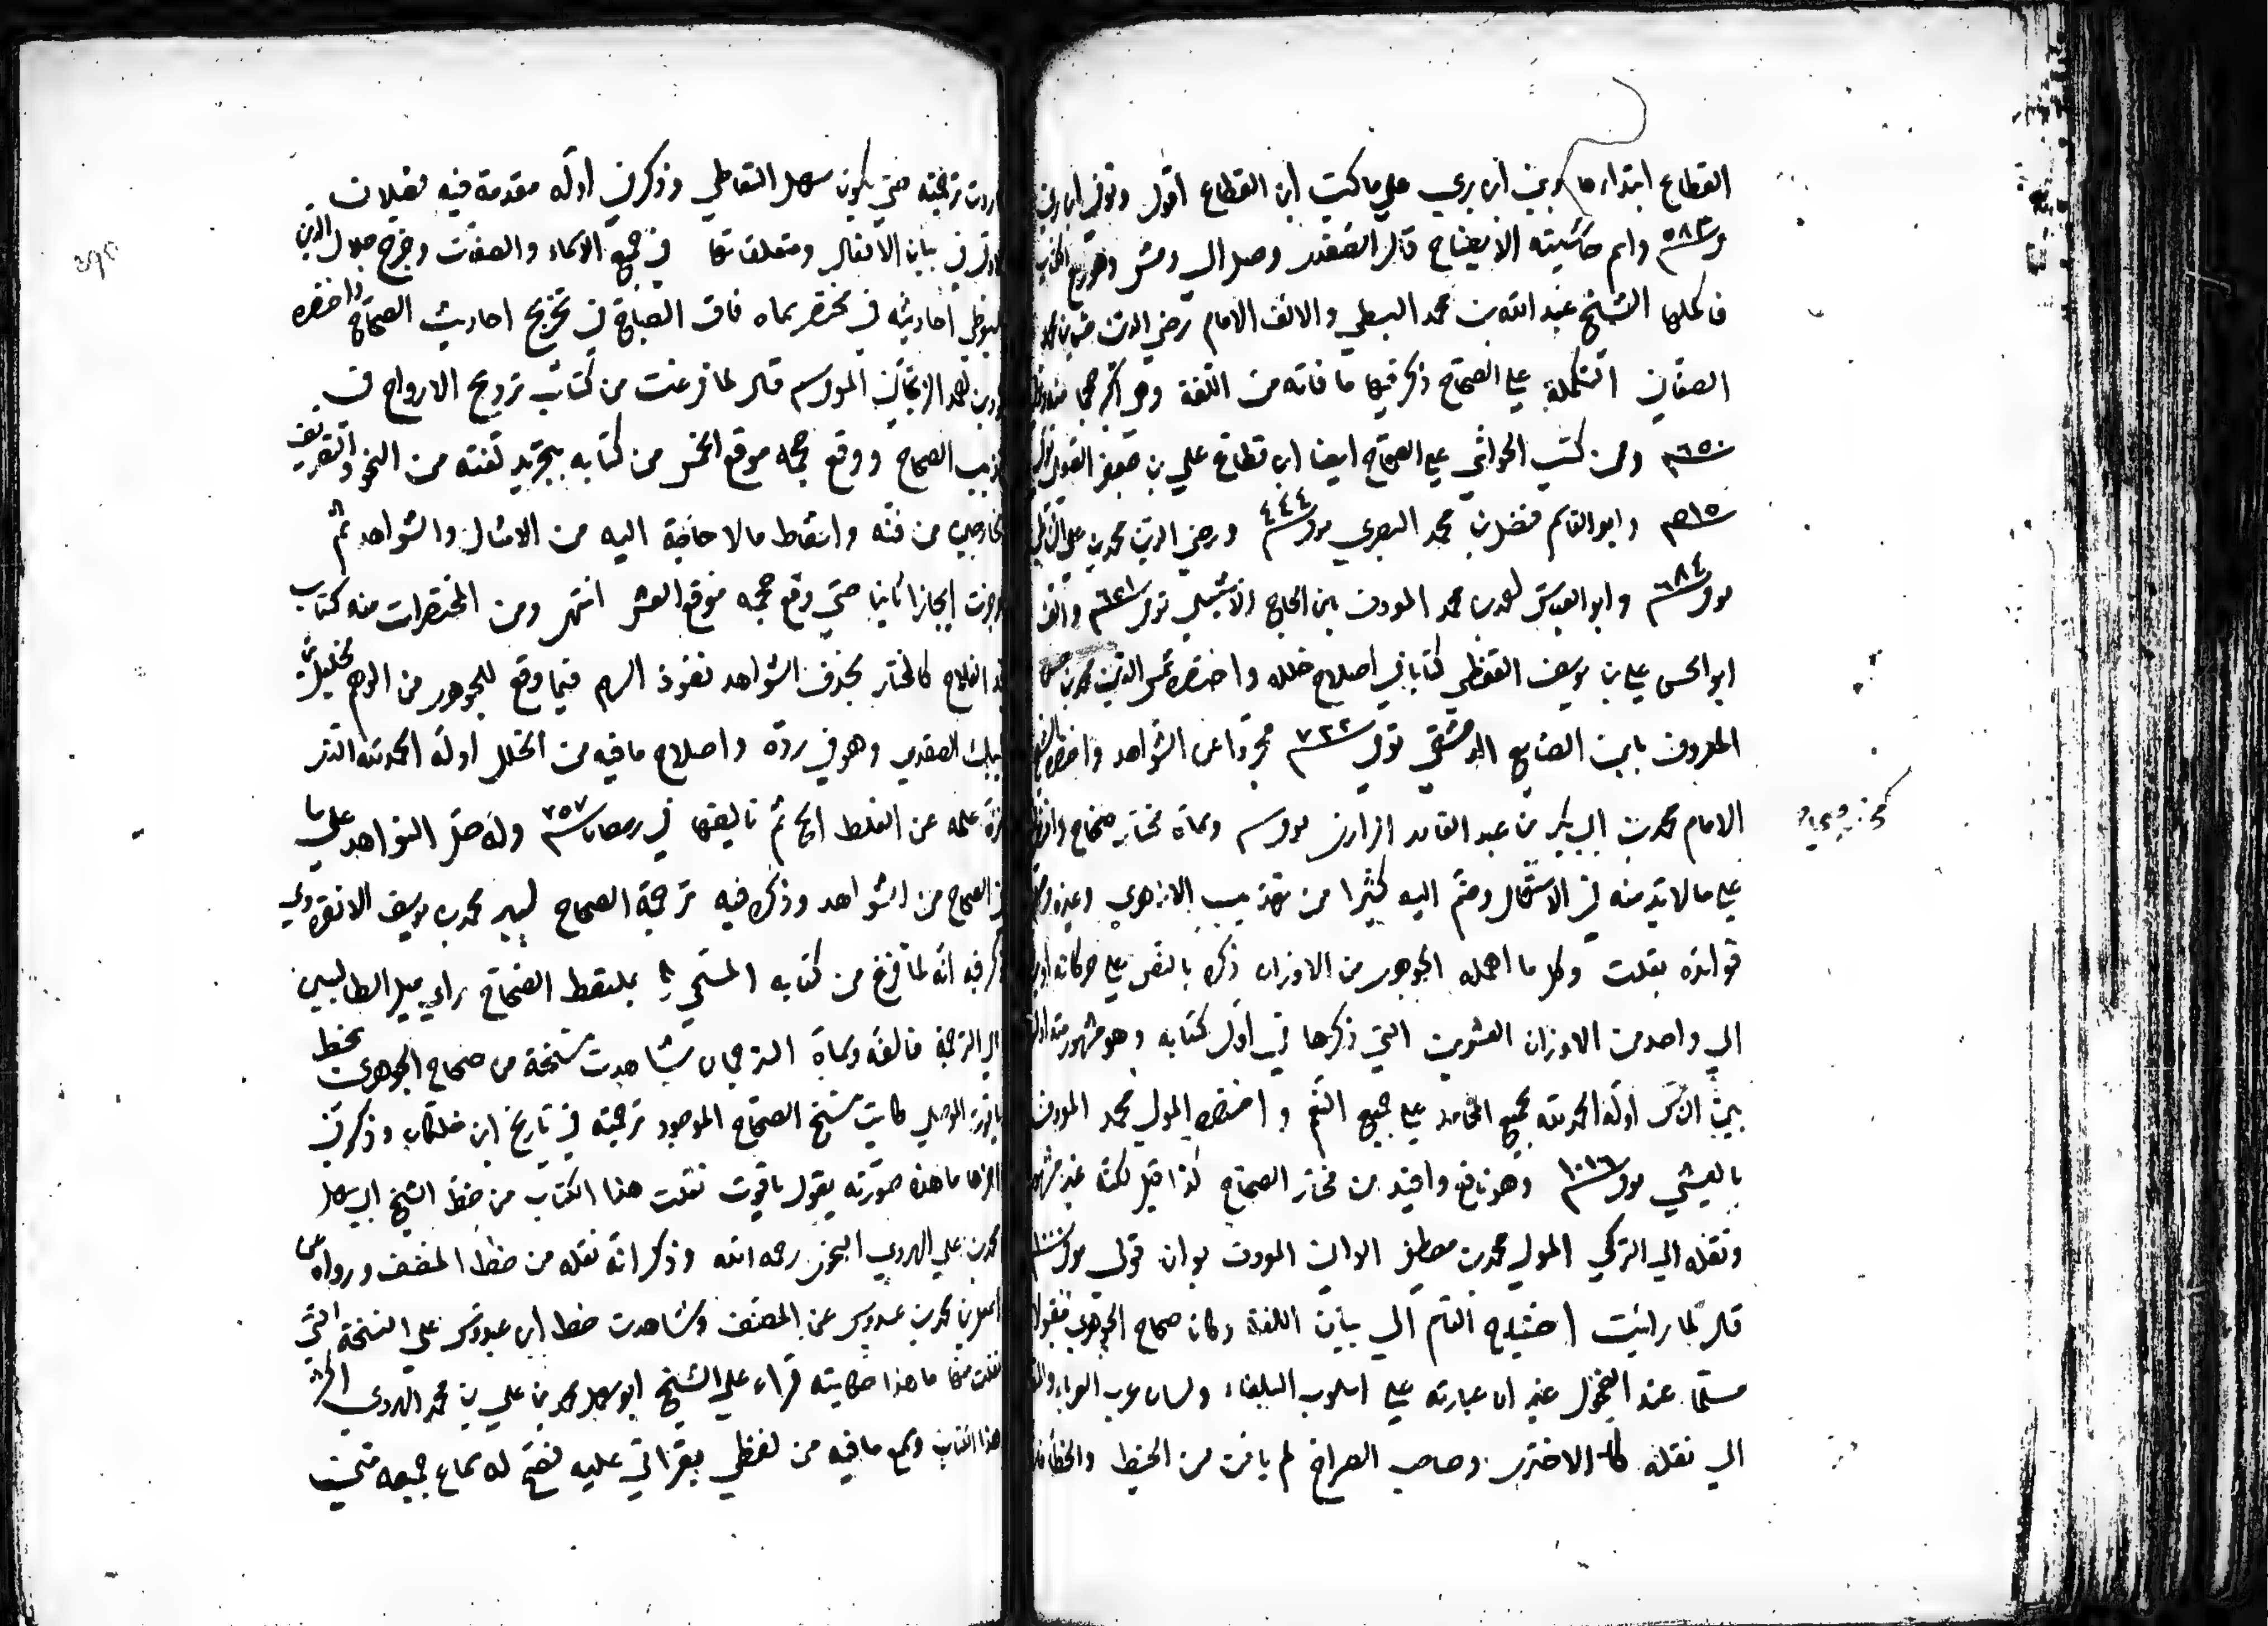 القطاع ابتداءها وبنى ابن بري على ما كتب ابن القطاع اقول وتوفي ابن بري
سنة ٥٨٢ واسم حاشيته الايضاح قال الصفدي وصل الى وقش وهو ربع الكتاب
فاكملها الشيخ عبد الله بن محمد البسطي والالف الامام رضي الدين حسن بن محمد
الصغاني التكملة على الصحاح ذكر فيها ما فاته من اللغة وهي اكبر حجما منه وتوفي
سنة ٦٥٠ وممن كتب الحواشي على الصحاح ايضا ابن قطاع علي بن جعفر الصقلي
سنة ٥١٥ وابو القاسم فضل بن محمد البصري متوفى سنة ٤٤٤ ورضي الدين محمد بن علي الشاطبي
متوفى سنة ٦٨٤ وابو العباس احمد بن محمد المعروف بابن الحاج الاشبيلي توفي سنة ٦٥١ والف
ابو الحسن علي بن يوسف القفطي كتابا في اصلاح خلله واختصره شمس الدين محمد بن حسن
المعروف بابن الصايغ الدمشقي توفي سنة ٧٢٢ مجردا عن الشواهد واختصره الشيخ
الامام محمد بن ابي بكر بن عبد القادر الرازي متوفى سنة وسماه مختار صحاح واقتصر
على ما لا بد منه في الاستعمال وضم اليه كثيرا من تهذيب الازهري وغيره وكل
فوائده بقلت وكل ما اهمله الجوهري من الاوزان ذكره بالنص على حركاته او
الى واحد من الاوزان العشرين التي ذكرها في اول كتابه وهو مشهور متداول
بين الناس اوله الحمد لله بجميع المحامد على جميع النعم واختصره المولى محمد المعروف
بالعيشي متوفى سنة ١٠١٦ وهو نافع وافيد من مختار الصحاح كذا قيل لكنه غير مشهور
ونقله الى التركي المولى محمد بن مصطفى الواني المعروف بوان قولي متوفى سنة ١٠٠٠
قال لما رايت احتياج الناس الى بيان اللغة وكان صحاح الجوهري مقبولا
مسلما عند الفحول غير ان عبارته على اسلوب البلغاء ولسان عرب العرباء
الى نقله كالاختري وصاحب الصراح لم يأمن من الخبط والخطأ
اردت ترجمته حتى يكون سهل التعاطي وذكر في اوله مقدمة فيه فصلان
الاول في بيان الافعال ومتعلقاتها في جميع الاسماء والصفات وخرج جلال الدين
السيوطي احاديثه في مختصر سماه فلق الصباح في تخريج احاديث الصحاح واختصره
محمود بن احمد الزنجاني المتوفى سنة قال لما فرغت من كتاب ترويح الارواح في
تهذيب الصحاح ووقع حجمه موقع الخمس من كتابه بتجريد لغته من النحو والتصريف
الخارجين من فنه واسقاط ما لا حاجة اليه من الامثال والشواهد ثم
اوجزت ايجازا ثانيا حتى وقع حجمه موقع العشر انتهى ومن المختصرات منه كتاب
نجد الفلاح كالمختار بحذف الشواهد نفوذ السهم فيما وقع للجوهري من الوهم لخليل بن
ايبك الصفدي وهو في رده واصلاح ما فيه من الخلل اوله الحمد لله الذي
نزه علمه عن الغلط الخ تم تاليفها في رمضان سنة ٧٥٧ وله حلي النواهد على ما
في الصحاح من الشواهد وذكر فيه ترجمة الصحاح لبير محمد بن يوسف الانقروي
ذكر فيه انه لما فرغ من كتابه المسمى بملتقط الصحاح راى ميل الطالبين
الى الترجمة فالفه وسماه الترجمان شاهدت نسخة من صحاح الجوهري بخط
ياقوت الموصلي كاتب نسخ الصحاح الموجود ترجمته في تاريخ ابن خلكان وذكر في
اخرها ما هذه صورته يقول ياقوت نقلت هذا الكتاب من خط الشيخ ابي سهل
محمد بن علي الهروي النحوي رحمه الله وذكر انه نقله من خط المصنف ورواه عن
اسمعيل بن محمد بن عبدوس عن المصنف وشاهدت خط ابن عبدوس على النسخة التي
نقلت منها ما هذا حكايته قراء علي الشيخ ابو سهل محمد بن علي بن محمد الهروي اكثر
هذا الكتاب وسمع ما فيه من لفظي بقراتي عليه فصح له سماع جميعه مني